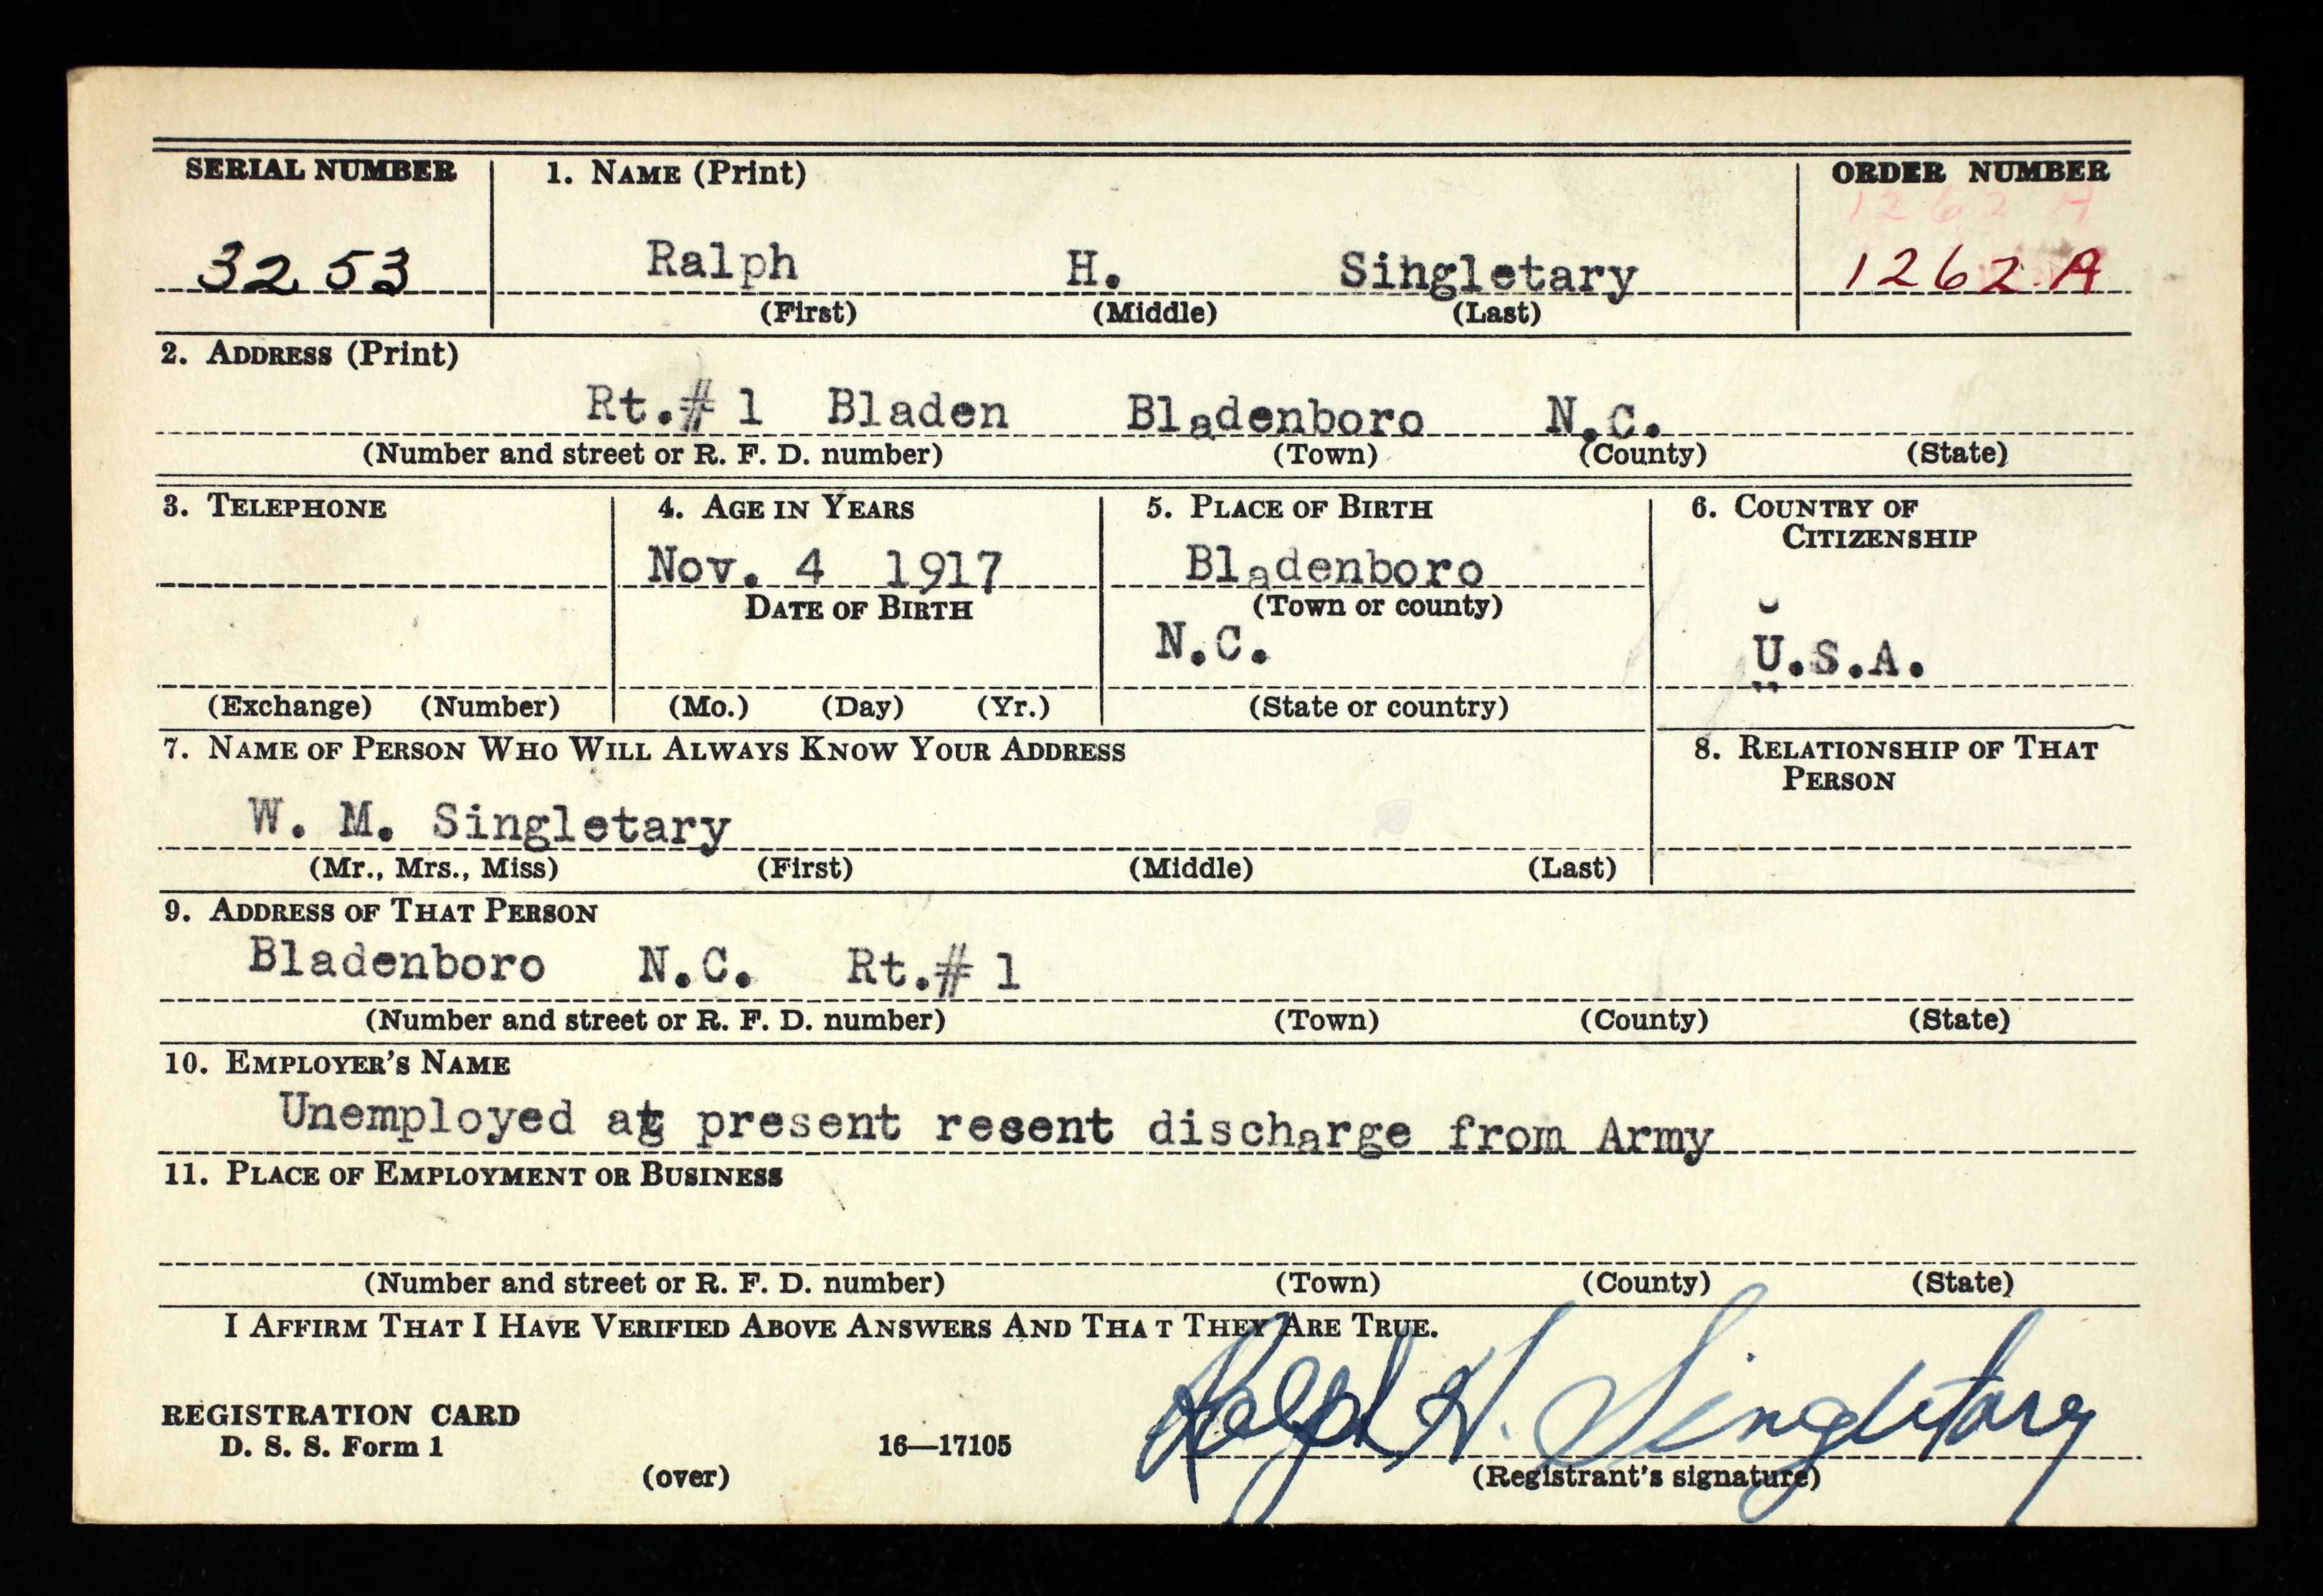 SERIAL NUMBER 1. NAME (Print) ORDER NUMBER
1262 A
3253 Ralph H. Singletary 1262 A
(First) (Middle) (Last)
2. ADDRESS (Print)
Rt.# 1 Bladen Bladenboro N.C.
(Number and street or R. F. D. number) (Town) (County) (State)
3. TELEPHONE 4. AGE IN YEARS 5. PLACE OF BIRTH 6. COUNTRY OF
CITIZENSHIP
Nov. 4 1917 Bladenboro
DATE OF BIRTH (Town or county)
N.C. U.S.A.
(Exchange) (Number) (Mo.) (Day) (Yr.) (State or country)
7. NAME OF PERSON WHO WILL ALWAYS KNOW YOUR ADDRESS 8. RELATIONSHIP OF THAT
PERSON
W. M. Singletary
(Mr., Mrs., Miss) (First) (Middle) (Last)
9. ADDRESS OF THAT PERSON
Bladenboro N.C. Rt.# 1
(Number and street or R. F. D. number) (Town) (County) (State)
10. EMPLOYER'S NAME
Unemployed at present resent discharge from Army
11. PLACE OF EMPLOYMENT OR BUSINESS
(Number and street or R. F. D. number) (Town) (County) (State)
I AFFIRM THAT I HAVE VERIFIED ABOVE ANSWERS AND THA T THEY ARE TRUE.
Ralph H. Singletary
REGISTRATION CARD
D. S. S. Form 1 16—17105
(over) (Registrant's signature)